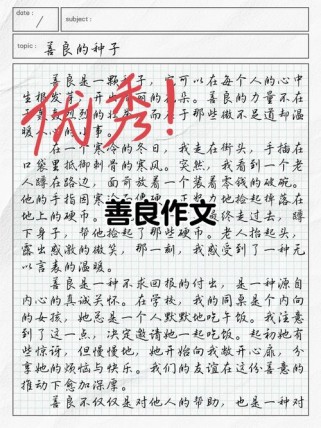 date:
subject: 善良的
topic: 善良的种子
善良是一颗种子，它可以在每个人的心中
生根发芽，开出美丽的花朵。善良的力量不在
而在于那些微不足道却温
暖人心的小事。
在一个寒冷的冬日，我走在街头，手插在
口袋里抵御刺骨的寒风。突然，我看到一个老
人蹲在路边，面前放着一个装着零钱的破碗。
他的手指因寒冷
地捡起掉落在
地上的硬币。
最终走过去，蹲
下身子，帮他捡起了那些硬币。老人抬起头，
露出感激的微笑，那一刻，我感受到了一种无
以言表的温暖。
善良是一种不求回报的付出，是一种源自
内心的真诚关怀。在学校，我的同桌是个内向
的女孩，她总是一个人默默地吃午饭。我注意
到了这一点，决定邀请她一起吃饭。起初她有
些惊讶，但慢慢地，她开始向我敞开心扉，分
享她的烦恼与快乐。我们的友谊在这份善意的
推动下愈加深厚。
善良不仅仅是对他人的帮助，也是一种对
优秀！
善良作文